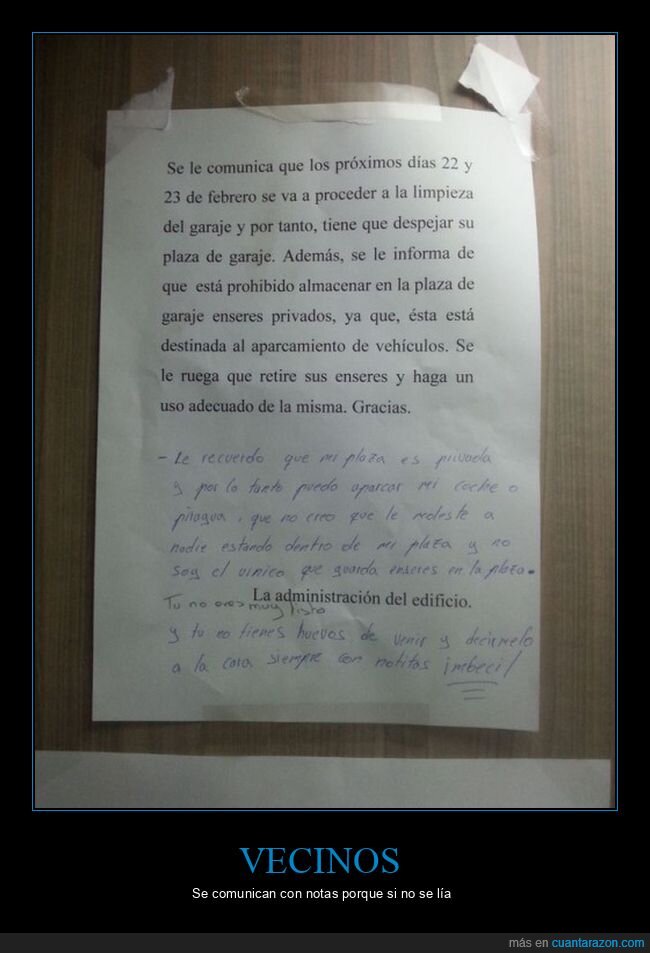 Se le comunica que los próximos días 22 y
23 de febrero se va a proceder a la limpieza
del garaje y por tanto, tiene que despejar su
plaza de garaje. Además, se le informa de
que está prohibido almacenar en la plaza de
garaje enseres privados, ya que, ésta está
destinada al aparcamiento de vehículos. Se
le ruega que retire sus enseres y haga un
uso adecuado de la misma. Gracias.
- Le recuerdo que mi plaza es privada
y por lo tanto puedo aparcar mi coche o
piragua, que no creo que le moleste a
nadie estando dentro de mi plaza y no
soy el unico que guarda enseres en la plaza.
La administración del edificio.
Tu no eres muy listo
y tu no tienes huevos de venir y decirmelo
a la cara siempre con notitas imbecil
VECINOS
Se comunican con notas porque si no se lía
más en cuantarazon.com